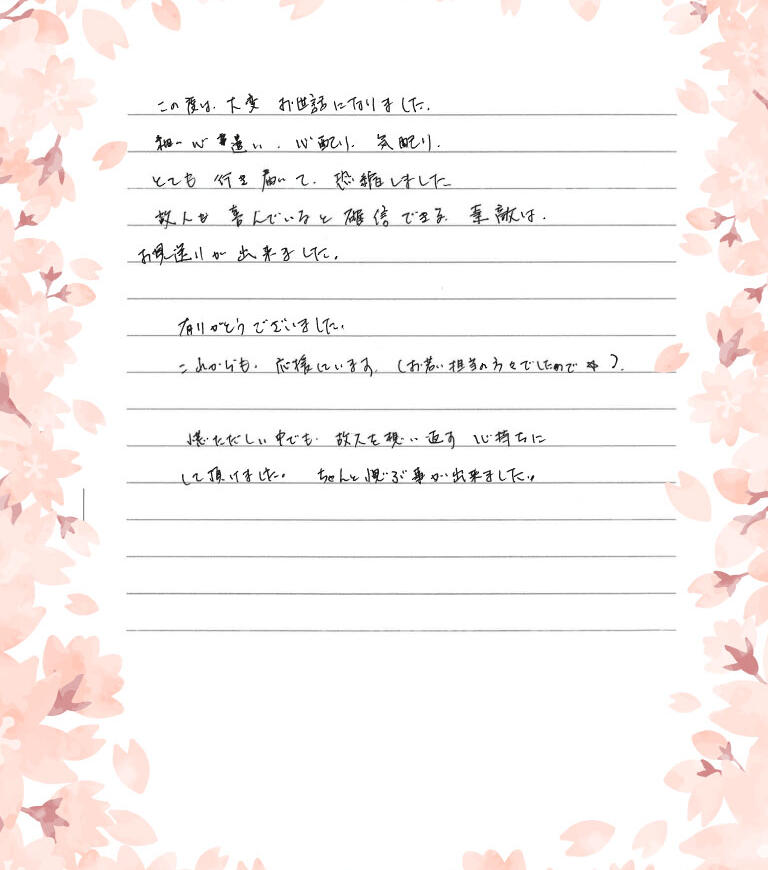 この度は、大変 お世話になりました。
細い心遣い、心配り、気配り、
とても 行き届いて、恐縮しました
故人も 喜んでいると 確信できる 素敵な、
お見送りが 出来ました。
有りがとうございました。
これからも、応援しています。(お若い担当の方々でしたので☆)。
慌ただしい中でも、故人を想い返す 心持ちに
して頂けました。 ちゃんと偲ぶ事が出来ました。